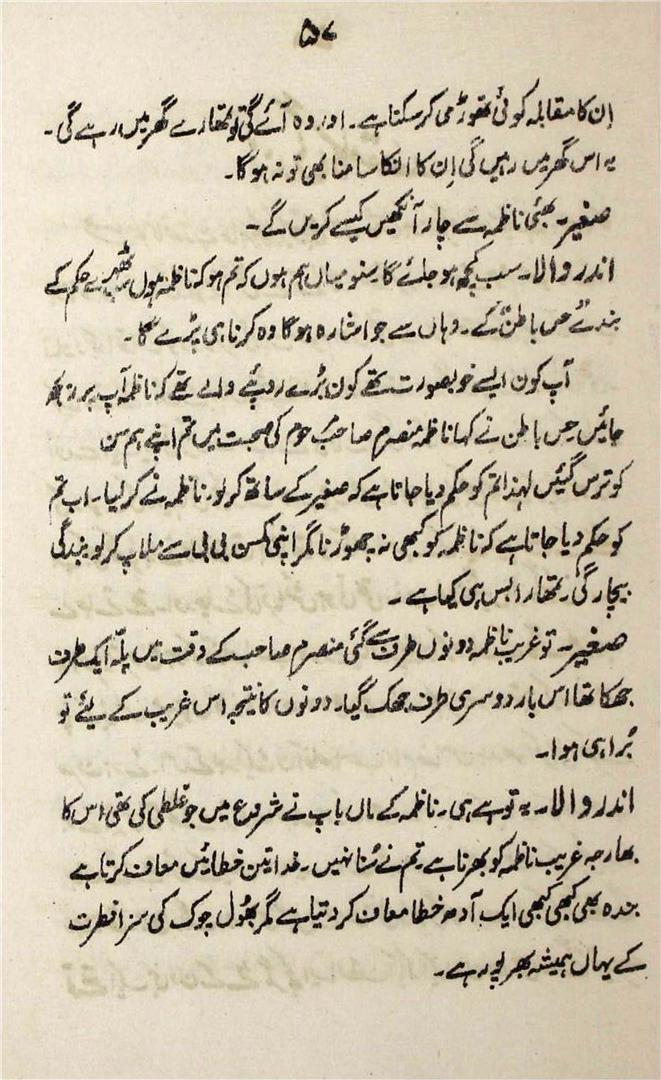 ۵۷
اِن کا مقابلہ کوئی تھوڑی کر سکتا ہے۔ اور وہ آئے گی تو تمھارے گھر میں رہے گی۔
یہ اس گھر میں رہیں گی اِن کا انکا سامنا بھی تو نہ ہوگا۔
صغیر۔ بھئی ناظمہ سے چار آنکھیں کیسے کریں گے۔
اندر والا۔ سب کچھ ہو جائے گا سنو میاں ہم ہوں کہ تم ہو کہ ناظمہ ہوں سب ٹھہرے حکم کے
بندے حسِ باطن کے۔ وہاں سے جو اشارہ ہوگا وہ کرنا ہی پڑے گا۔
آپ کون ایسے خوبصورت تھے کون بڑے روپئے والے تھے کہ ناظمہ آپ پر
جائیں حسِ باطن نے کہا ناظمہ منصرم صاحب مرحوم کی صحبت میں تم اپنے ہم سن
کو ترس گئیں لہٰذا تم کو حکم دیا جاتا ہے کہ صغیر کے ساتھ کر لو۔ ناظمہ نے کر لیا۔ اب تم
کو حکم دیا جاتا ہے کہ ناظمہ کو کبھی نہ چھوڑنا مگر اپنی کمسن بی بی سے ملاپ کر لو بندگی
بیچارگی۔ تمھارا بس ہی کیا ہے۔
صغیر۔ تو غریب ناظمہ دونوں طرف سے گئی منصرم صاحب کے وقت میں پلّہ ایک طرف
جھکا تھا اس بار دوسری طرف جھک گیا۔ دونوں کا نتیجہ اس غریب کے لیئے تو
بُرا ہی ہوا۔
اندر والا۔ یہ تو ہے ہی۔ ناظمہ کے ماں باپ نے شروع میں جو غلطی کی تھی اس کا
بھارجہ غریب ناظمہ کو بھرنا ہے۔ تم نے سُنا نہیں۔ خدا تین خطائیں معاف کرتا ہے
بندہ بھی کبھی کبھی ایک آدھ خطا معاف کر دیتا ہے مگر بھُول چوک کی سزا فطرت
کے یہاں ہمیشہ بھرپور ہے۔